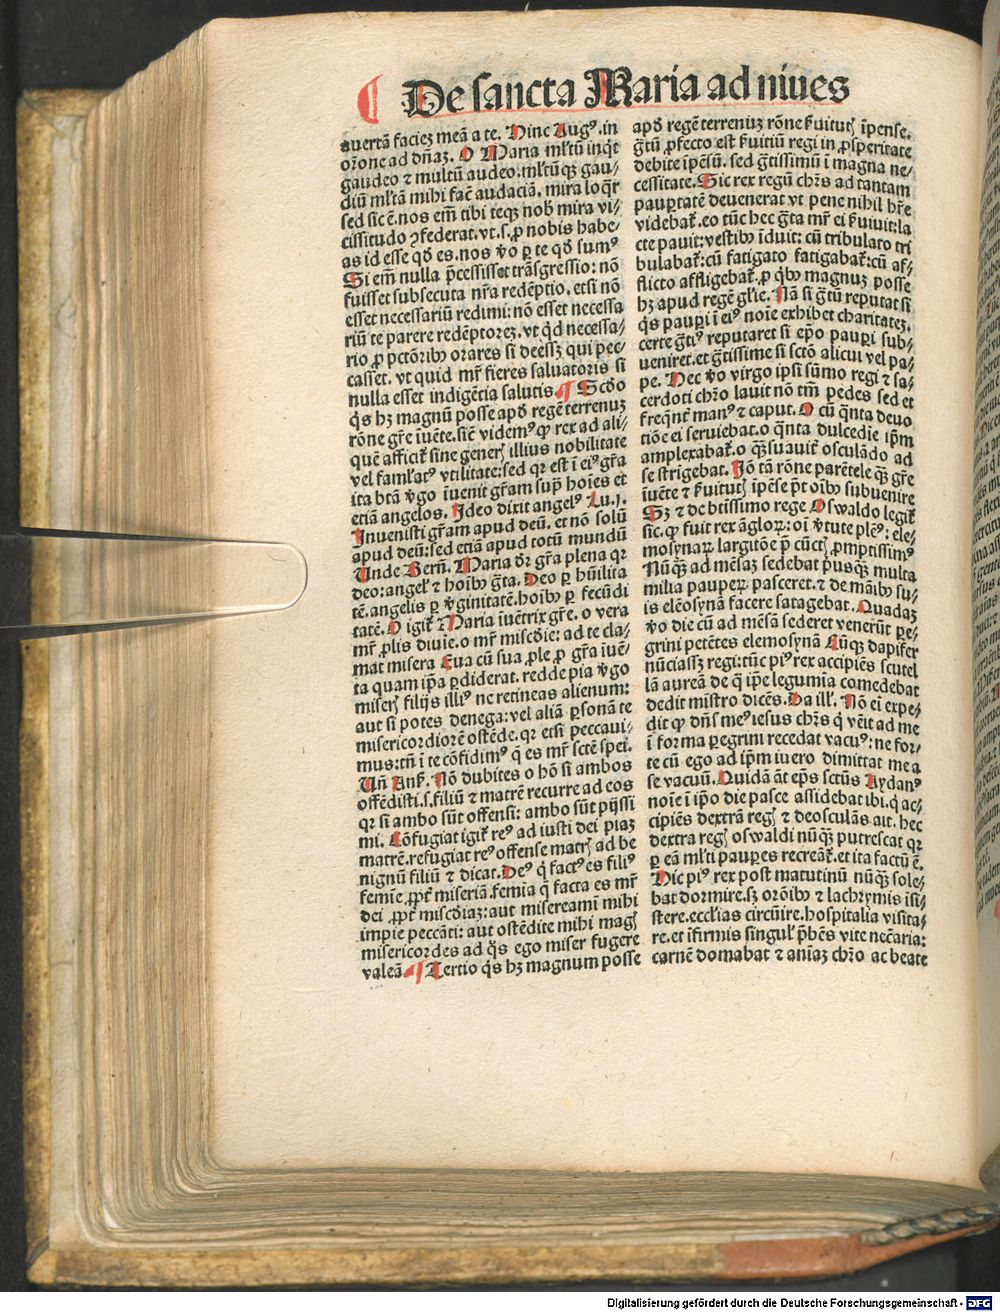 De sancta Maria ad niues
auertā faciez meā a te. Hinc Augꝰ. in
oꝛōne ad dn̄aꝫ. O Maria ml̄tū inqͥt
gaudeo ⁊ multū audeo: ml̄tūqꝫ gau⸗
diū ml̄tam mihi fac̄ audaciā. mira loqͬr
sed sic ē. nos em̄ tibi teqꝫ nob̄ mira vi⸗
cissitudo ꝯfederat. vt .s. ꝓ nobis habe⸗
as id esse qd̄ es. nos v̄o ꝑ te qd̄ sumꝰ
Si em̄ nulla p̄cessisset trāsgressio: nō
fuisset subsecuta nr̄a redēptio. etsi nō
esset necessariū redimi: nō esset necessa
riū te parere redēptoreꝫ. vt qͥd necessa⸗
rio ꝓ pctōribꝰ oꝛares si deessꝫ qui pec⸗
casset. vt quid mr̄ fieres saluatoris si
nulla esset indigētia salutis. ¶ Scd̄o
qͥs hꝫ magnū posse apd̄ regē terrenuꝫ
rōne gr̄e iuēte. sic̄ videmꝰ ꝙ rex ad ali⸗
quē afficit̄ sine generꝭ illius nobilitate
vel faml̄atꝰ vtilitate: sed qꝛ est ī eiꝰ gr̄a
ita btā v̄go iuenit gr̄am sup̄ hoīes et
etiā angelos. Ideo dixit angelꝰ Lu. j.
Inuenisti gr̄am apud deū. et nō solū
apud deū: sed etiā apud totū mundū
Unde Bern̄. Maria dr̄ gr̄a plena qꝛ
deo: angel̄ ⁊ hoībꝰ ḡta. Deo ꝑ hūilita
tē. angelis ꝑ v̄ginitatē. hoībꝰ ꝑ fecūdi
tatē. O igit̄ Maria iuētrix gr̄e. o vera
mr̄ ꝓlis diuie. o mr̄ miscd̄ie: ad te cla⸗
mat misera Eua cū sua ꝓle ꝓ gr̄a iuē⸗
ta quam ip̄a ꝑdiderat. redde pia v̄go
miserꝭ filijs illiꝰ ne retineas alienum:
aut si potes denega: vel aliā ꝑsonā te
misericordiorē ostēde. qꝛ etsi peccaui⸗
mus: tn̄ i te cōfidimꝰ q̄ es mr̄ sctē spei.
Un̄ Ans̄. Nō dubites o hō si ambos
offēdisti .s. filiū ⁊ matrē recurre ad eos
qꝛ si ambo sūt offensi: ambo sūt pijssi
mi. Cōfugiat igit̄ reꝰ ad iusti dei piaꝫ
matrē. refugiat reꝰ offense matrꝭ ad be
nignū filiū ⁊ dicat. Deꝰ qͥ factꝰ es filiꝰ
femie ꝓpt̄ miseriā. femia q̄ facta es mr̄
dei ꝓpt̄ miscd̄iaꝫ: aut misereamī mihi
impie peccāti: aut ostēdite mihi magꝭ
misericordes ad qͦs ego miser fugere
valeā. ¶ Tertio qͥs hꝫ magnum posse
apd̄ regē terrenuꝫ rōne s̄uitutꝭ īpense.
ḡtū ꝓfecto est s̄uitiū regi in ꝓsperitate
debite ipēsū. sed ḡtissimū i magna ne⸗
cessitate. Sic rex regū chr̄s ad tantam
paupꝛtatē deuenerat vt pene nihil hr̄e
videbat̄. eo tūc hec ḡta mr̄ ei s̄uiuit: la
cte pauit: vestibꝰ īduit: cū tribulato tri
bulabat̄: cū fatigato fatigabat̄: cū af⸗
flicto affligebat̄. ꝓ qͥbꝰ magnuꝫ posse
hꝫ apud regē gl̄ie. Nā si ḡtū reputat si
qͥs pauꝑi ī eiꝰ noīe exhibet charitateꝫ.
certe ḡtiꝰ reputaret si ep̄o pauꝑi sub⸗
ueniret. et ḡtissime si sctō alicui vel pa⸗
pe. Hec v̄o virgo ipsi sūmo regi ⁊ sa⸗
cerdoti chr̄o lauit nō tm̄ pedes sed et
freqn̄t̄ manꝰ ⁊ caput. O cū qͣnta deuo
tiōe ei seruiebat. o qͣnta dulcedie ip̄m
amplexabat̄. o qͣꝫ suauit̄ osculādo ad
se strigebat. Nō tā rōne parētele qͣꝫ gr̄e
iuēte ⁊ s̄uitutꝭ ip̄ese pt̄ oībꝰ subuenire
Sꝫ ⁊ de btissimo rege Oswaldo legit̄
sic. ꝙ fuit rex āgloꝝ: oī v̄tute plēꝰ: ele⸗
mosynaꝝ largitōe p̄ cūctꝭ ꝓmptissimꝰ
Nūqͣꝫ ad mēsaꝫ sedebat pͥusqͣꝫ multa
milia pauperꝝ pasceret. ⁊ de manibꝰ su⸗
is eleōsynā facere satagebat. Quadaꝫ
v̄o die cū ad mēsā sederet venerūt pe⸗
grini petētes elemosynā Cūqꝫ dapifer
nūciassꝫ regi: tūc piꝰ rex accipiēs scutel
lā aureā de q̄ ip̄e legumia comedebat
dedit mīstro dicēs. Da ill̄. Nō ei expe⸗
dit ꝙ dn̄s meꝰ iesus chr̄s qͥ vēit ad me
ī forma ꝑegrini recedat vacuꝰ: ne for⸗
te cū ego ad ip̄m iuero dimittat me a
se vacuū. Quidā āt ep̄s sctūs Aydanꝰ
noīe i ip̄o die pasce assidebat ibi. qͥ ac⸗
cipiēs dextrā regꝭ ⁊ deosculās ait. hec
dextra regꝭ oswaldi nūqͣꝫ putrescat qꝛ
ꝑ eā ml̄ti pauꝑes recreāt̄. et ita factū ē.
Hic piꝰ rex post matutinū nūqͣꝫ sole⸗
bat dormire. sꝫ orōibꝰ ⁊ lachrymis isi⸗
stere. eccl̄ias circūire. hospitalia visita⸗
re. et īfirmis singul̄ p̄bēs vite nec̄aria:
carnē domabat ⁊ aniaꝫ chr̄o ac beate
Digitalisierung gefördert durch die Deutsche Forschungsgemeinschaft - DFG